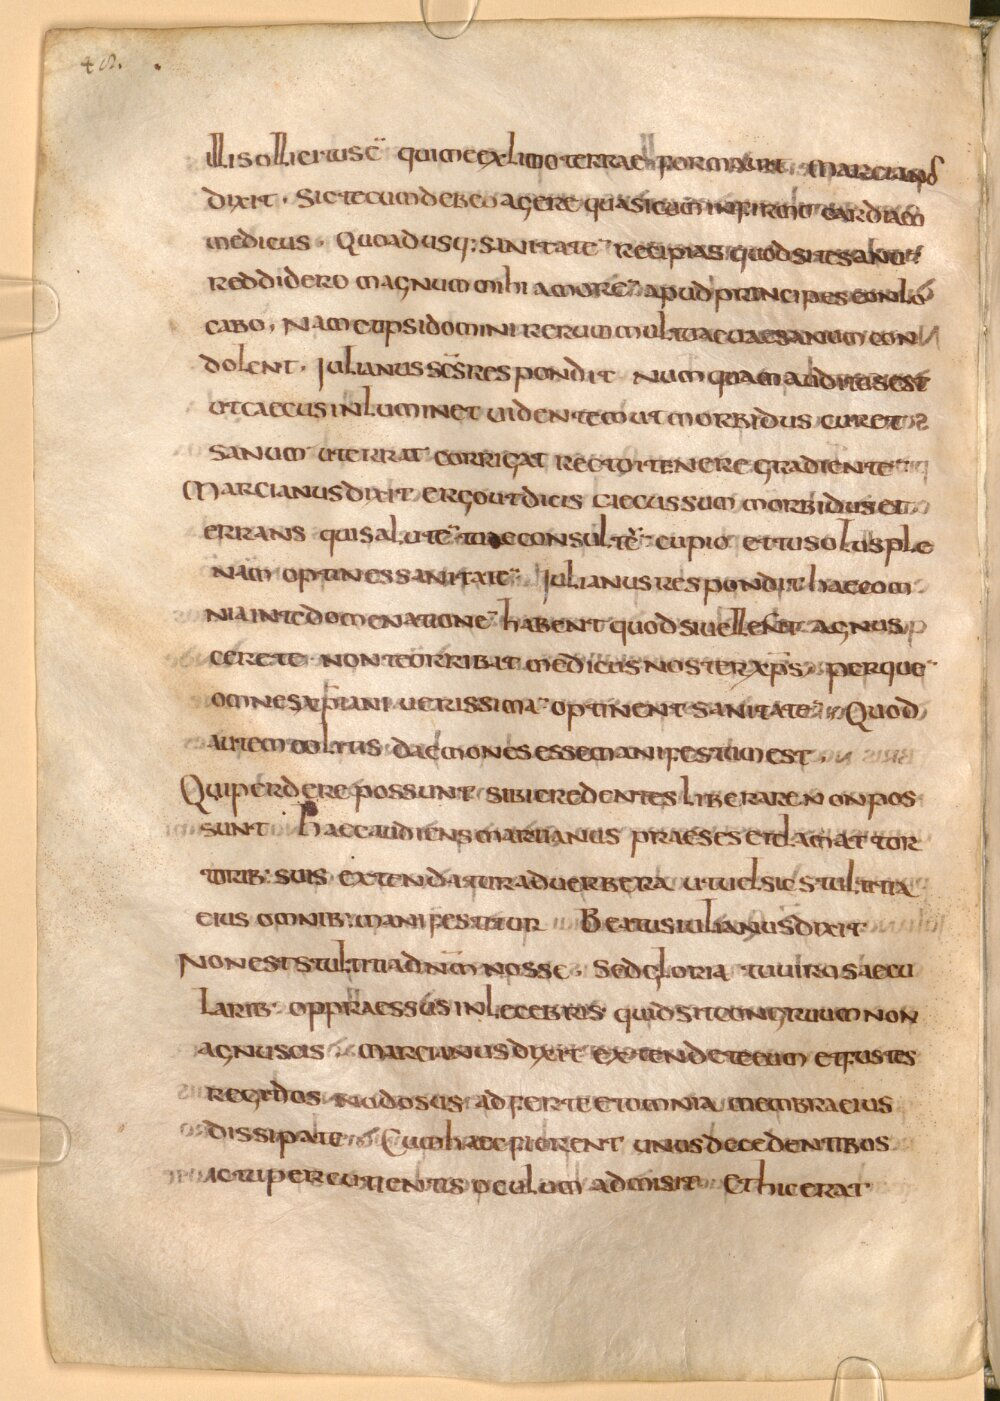 48.
illi sollicitus ē qui me ex limo terrae formavit. Marcianus
dixit. Sic tecum debeo agere quasi cum infirmo cardiaco
medicus. Quoadusq: sanitatē recipias quod si te sanū
reddidero magnum mihi amorē apud principes conlo
cabo. Nam et ipsi domini rerum multum tuae vaesanum con
dolent. Iulianus scs respondit numquam auditus est
ut caecus inluminet videntem ut morbidus curet
sanum ut errat corrigat recto itenere gradientē
Marcianus dixit ergo ut dicis caecus sum morbidus et
errans qui salutē tuae consultē cupio et tu solus ple
nam optines sanitatē Iulianus respondit haec om
nia in te domenationē habent quod si vellent agnus
cere te non te orribat medicus noster xps per quē
omnes xpiani verissimā optinent sanitatē Quod
autem coltus daemones esse manifestum est.
Qui perdere possunt sibi credentes liberare non pos
sunt. Haec audiens marcianus praeses clamat tor
torib: suis extendatur ad verbera ut vel sic stultitia
eius omnib: manifestitur Beatus iulianus dixit
Non est stultitia dnm nosse. Sed gloria tu viro saecu
larib: oppraessus inlecebris quid sit congruum non
agnuscis. Marcianus dixit extendite eum et fustes
regidos nodosus adferte et omnia membra eius
dissipate. Cum haec fiorent unus decedentibos
ictu percutientis oculum admisit. Et hic erat